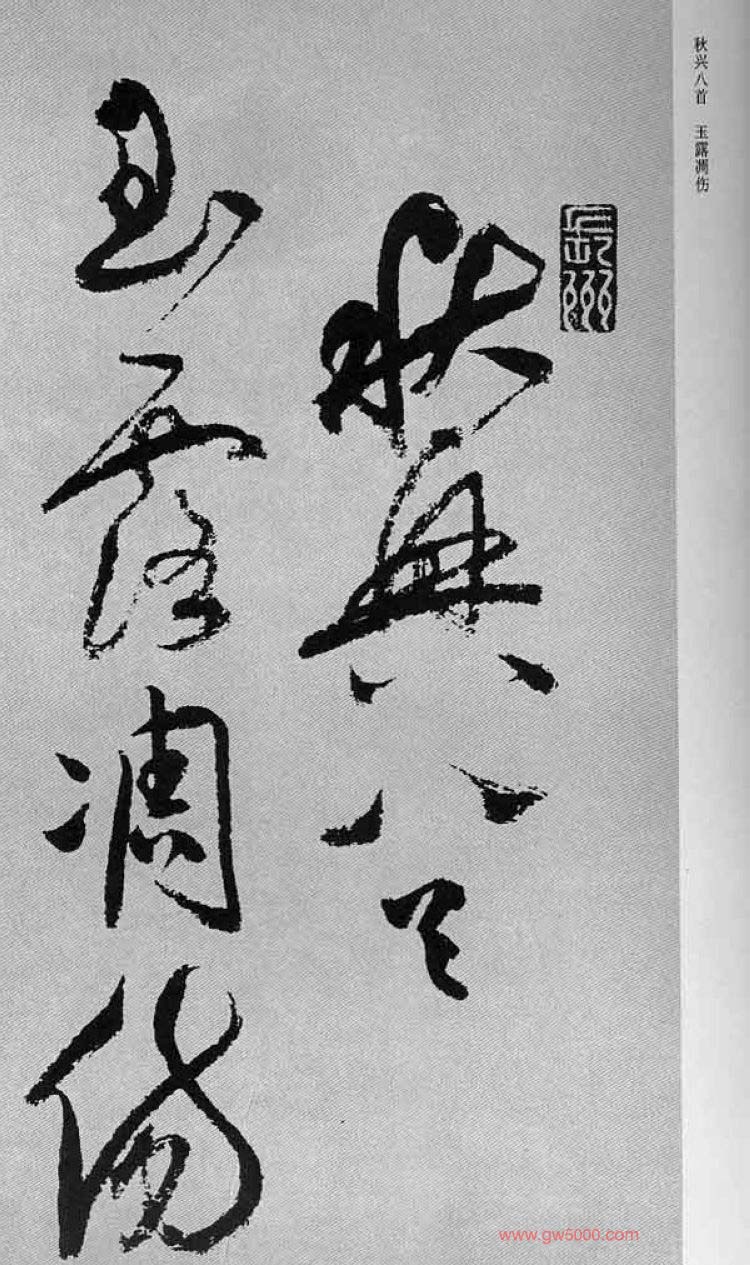 秋兴八首 玉露凋伤
秋興八首
玉露凋傷
www.gw5000.com